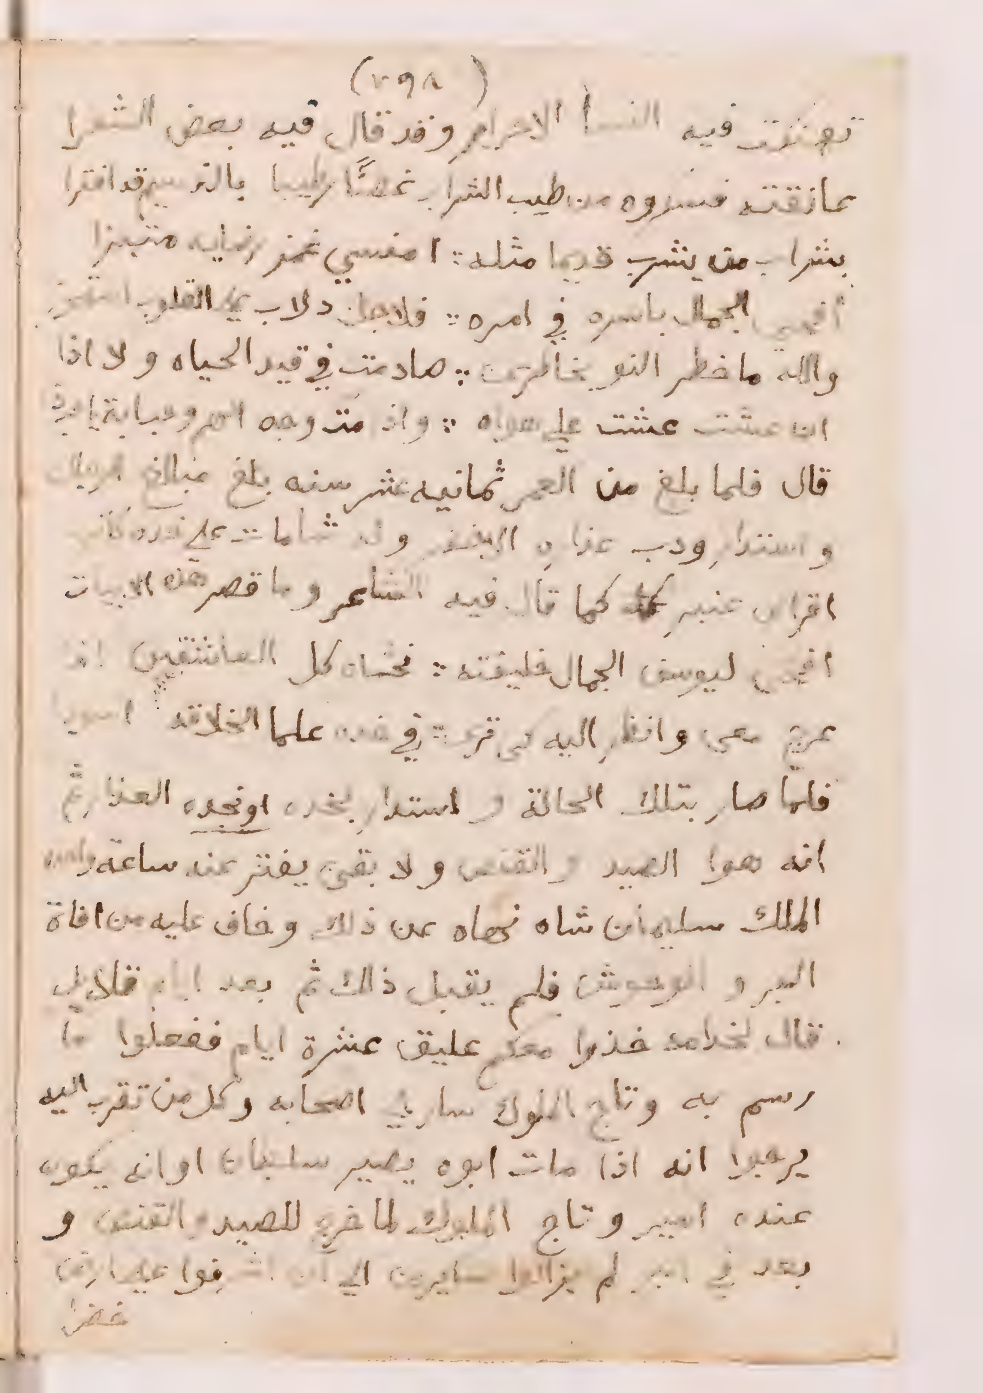 (٢٩٨)
تهتكت فيه النسا الاحرار وقد قال فيه بعض الشعرا
عانقته فسكرت من طيب الشراب غصنًا رطيبا بالنسيم قد اغتدا
بشراب من يشرب قديما مثله ؞ امسي بخمر رضابه متنبذا
أضحي الجمال باسره في اسره ؞ فلاجل ذلاب علي القلوب استحوذ
والله ما خطر السلو بخاطري ؞ مادمت في قيد الحياه ولا اذا
ان عشت عشت علي هواه ؞ وان مت وجدا وصبابة يا حبذا
قال فلما بلغ من العمر ثمانيه عشر سنه بلغ مبالغ الرجال
واستدار ودب عذاره الاخضر وله شامات علي خده كانها
اقراص عنبر كما قال فيه الشاعر وما قصر هذه الابيات
اضحي ليوسف الجمال خليفته ؞ تخشاه كل العاشقين اذا
عرج معي وانظر اليه كي تري ؞ في خده علما الخلافه اسودا
فلما صار بتلك الحالة واستدار بخده او نجده العذار ثم
انه هوا الصيد والقنص ولا بقي يفتر عنه ساعة واحده
الملك سليمان شاه نهاه عن ذلك وخاف عليه من افاة
البر والوحوش فلم يقبل ذالك ثم بعد ايام قلايل
قال لخدامه خذوا معكم عليق عشرة ايام ففعلوا ما
رسم به وتاج الملوك سار في اصحابه وكل من تقرب اليه
يرجوا انه اذا مات ابوه يصير سلطان اوانه يكون
عنده امير وتاج الملوك لما خرج للصيد والقنص و
بعد في البر لم يزالوا سايرين الي ان اشرفوا علي ارض
خضرا